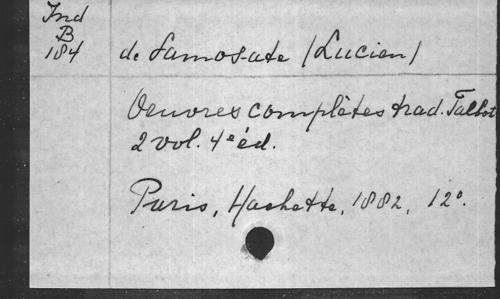 Ind
B
184
de Samosate (Lucien)
Oeuvres complètes trad. Talbot
2 vol. 4e éd.
Paris, Hachette, 1882, 12°.